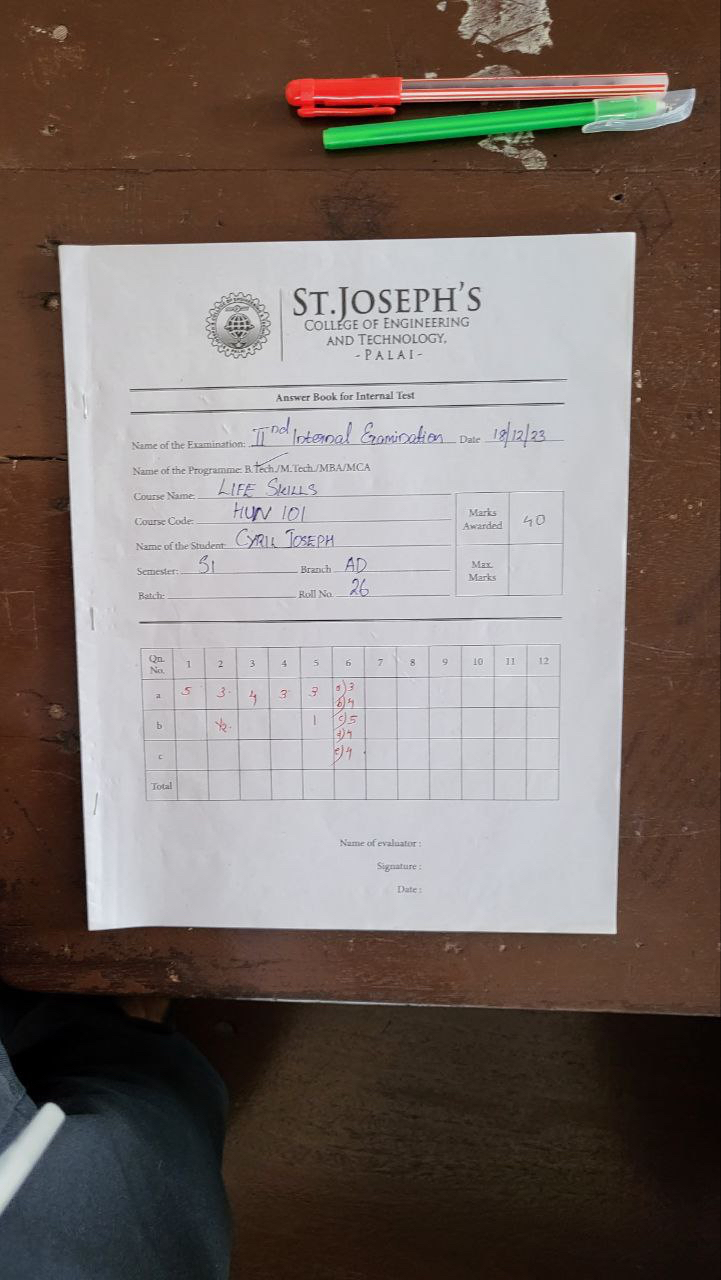 ST.JOSEPH'S
COLLEGE OF ENGINEERING
AND TECHNOLOGY,
- PALAI -
Answer Book for Internal Test
Name of the Examination: IInd Internal Examination Date 18/12/23
Name of the Programme: B.Tech./M.Tech./MBA/MCA
Course Name: LIFE SKILLS
Course Code: HUN 101
Marks Awarded 40
Name of the Student: CYRIL JOSEPH
Semester: S1 Branch AD
Max. Marks
Batch: Roll No. 26
Qn. No. 1 2 3 4 5 6 7 8 9 10 11 12
a 5 3 4 3 3 a)3
b)4
b ½ 1 c)5
d)4
c e)4
Total
Name of evaluator :
Signature :
Date :